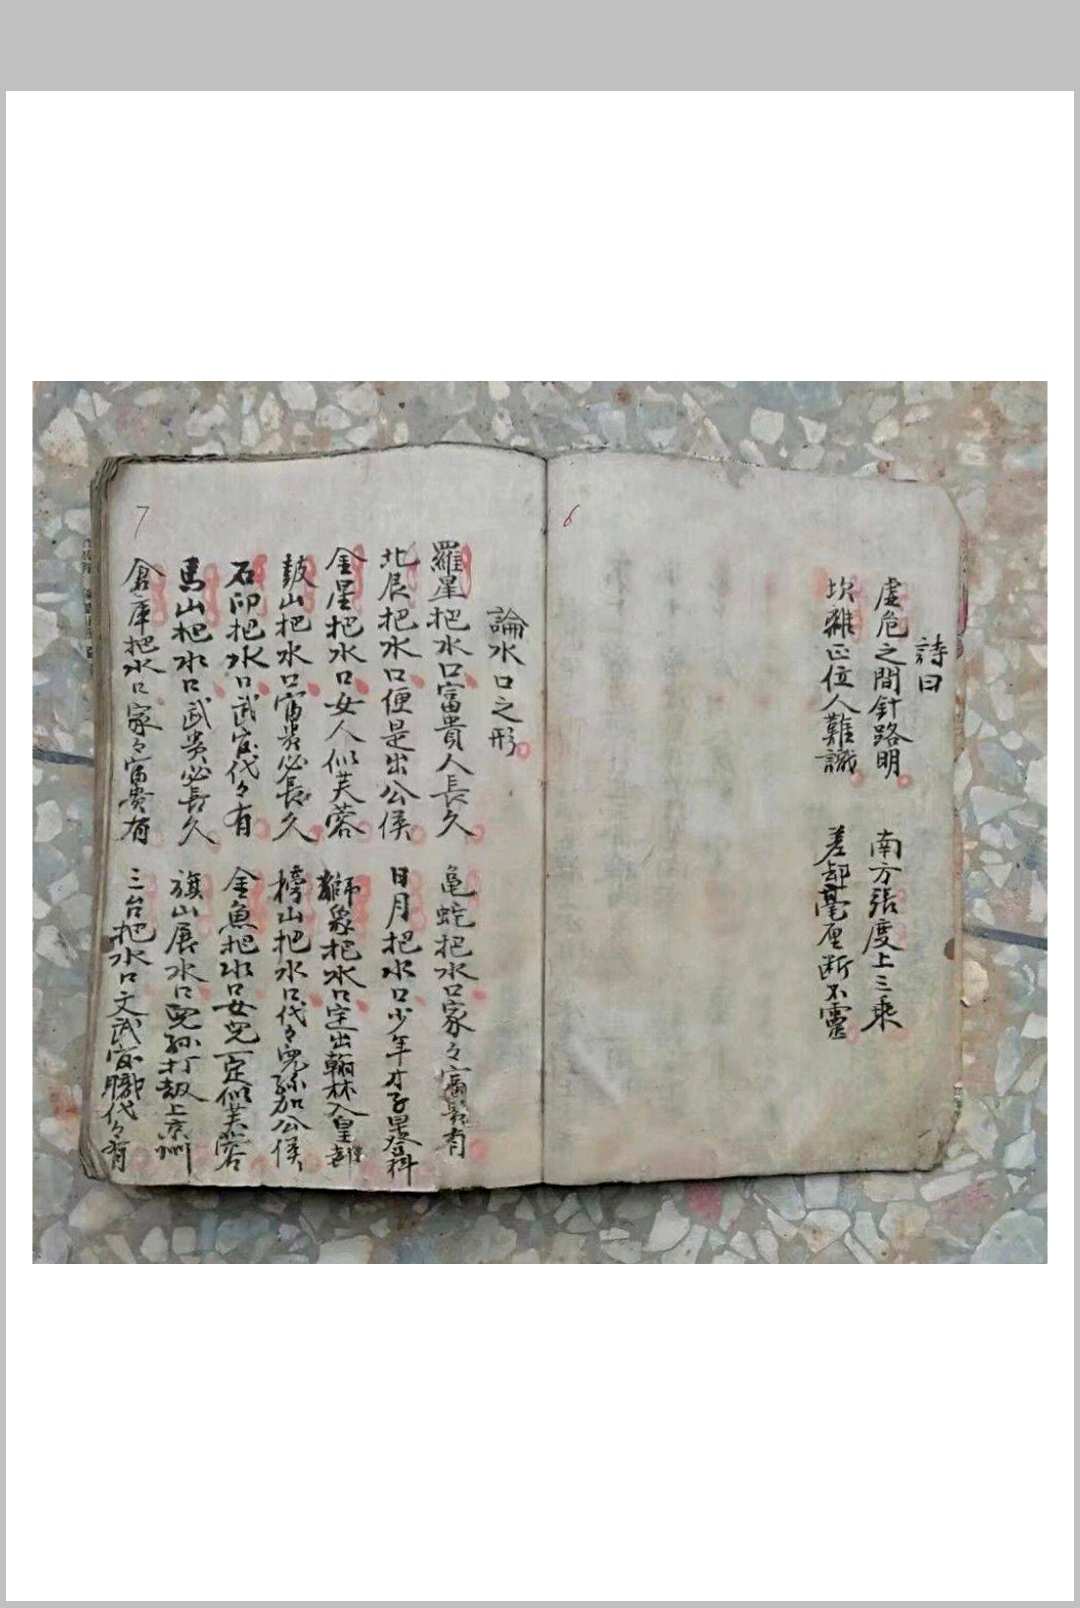 6
詩曰
虛危之間針路明　南方張度上三乘
坎離正位人難識　差却毫厘断不靈
7
論水口之形
羅星把水口富貴人長久　龜蛇把水口家々富貴有
北辰把水口便是出公侯　日月把水口少年才子早登科
金星把水口女人似芙蓉　獅象把水口定出翰林入皇都
鼓山把水口富貴必長久　榜山把水口代々兒孫加公侯
石印把水口武官代々有　金魚把水口女兒一定似芙蓉
馬山把水口武貴必長久　旗山展水口兒孫打劫上京州
倉庫把水口家々富貴有　三台把水口文武官職代々有